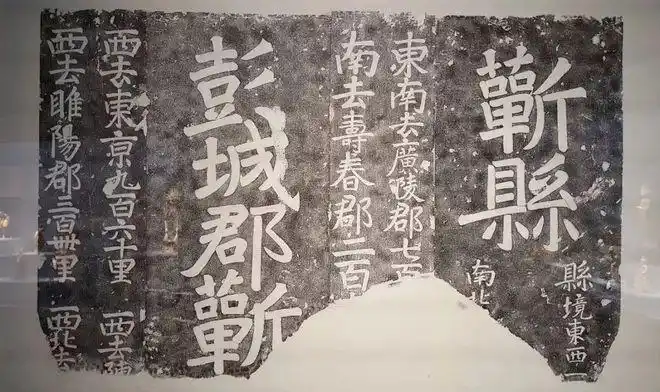 蘄縣
縣境東西一
南北
東南去廣陵郡七百
南去壽春郡二百
彭城郡蘄
西去東京九百六十里 西去陳
西去睢陽郡三百卌里 西北去